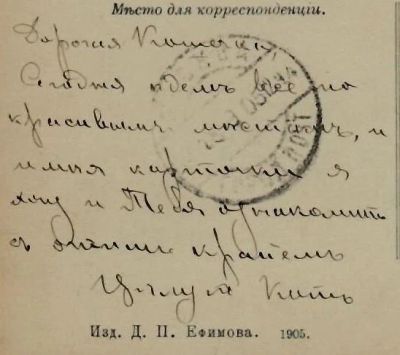 Мѣсто для корреспонденціи.
Дорогая
Сегодня едемъ все по
красивымъ мѣстамъ, и
имѣя карточки я
хочу и Тебя ознакомить
с этимъ краемъ
Цѣлую Кать
Изд. Д. П. Ефимова. 1905.